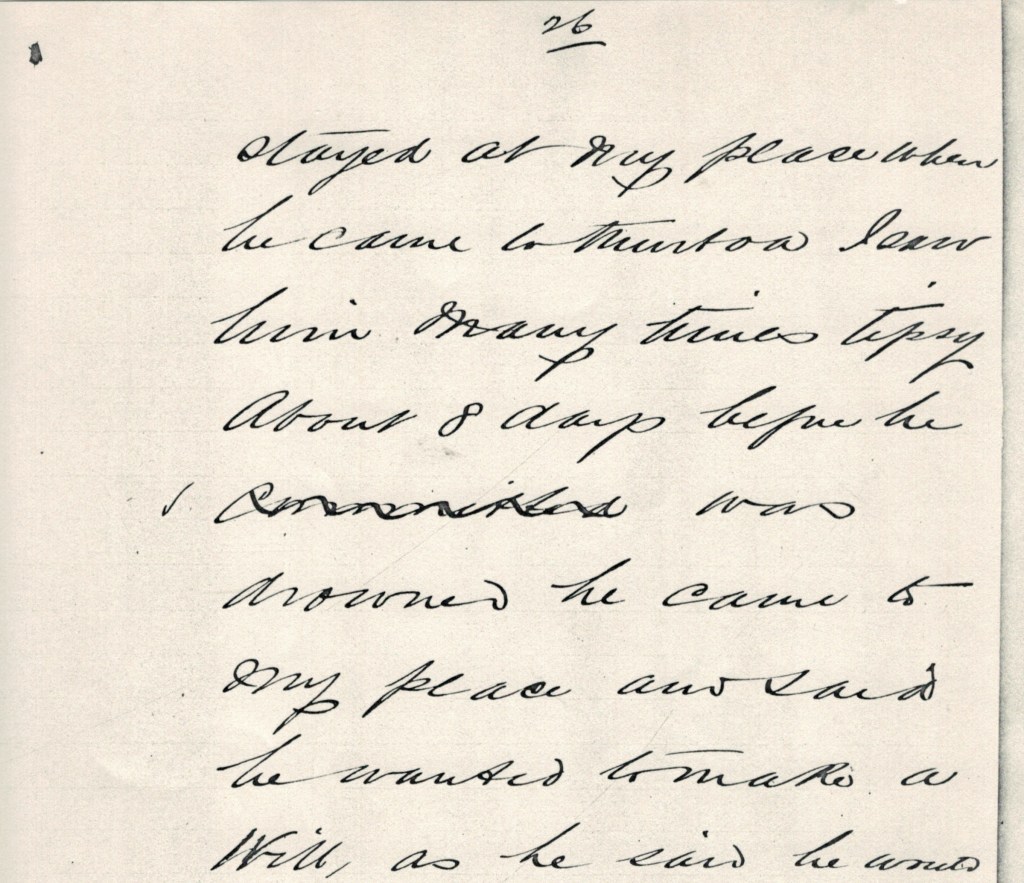 26
stayed at my place when
he came to Muntoa I saw
him many times tipsy
About 8 days before he
committed was
drowned he came to
my place and said
he wanted to make a
Will, as he said he would